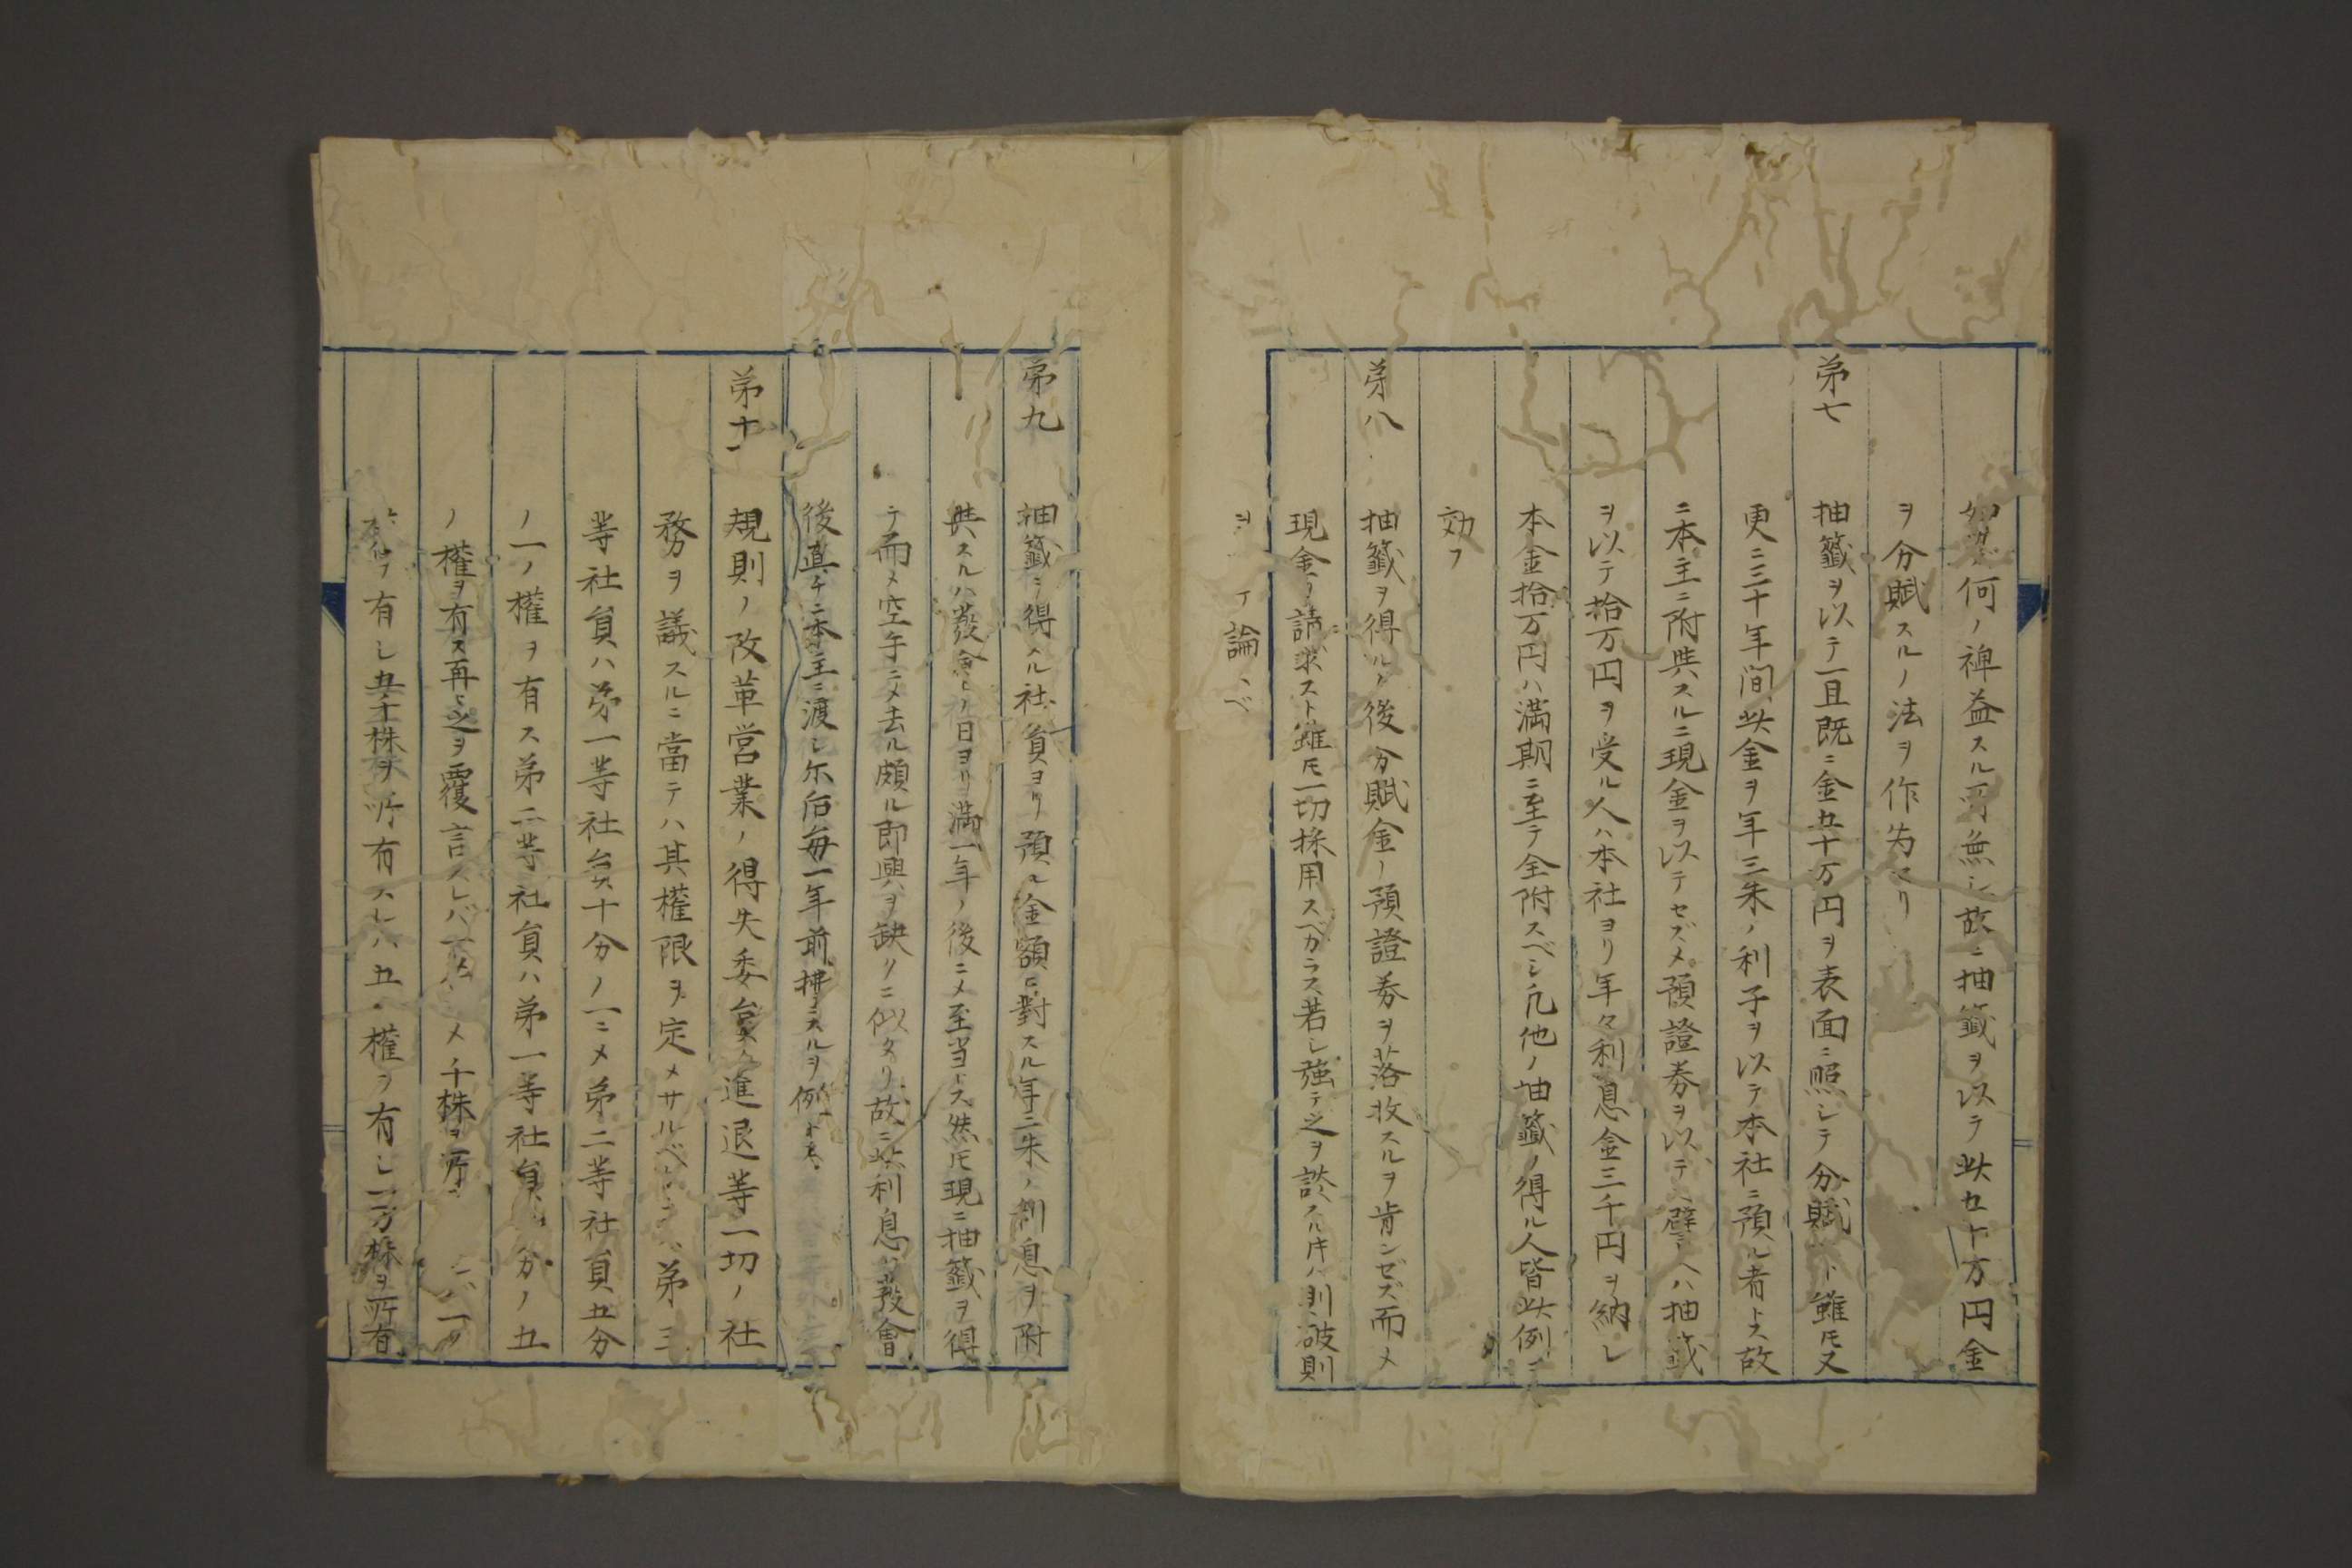 如斯何ノ裨益スル所無シ故ニ抽籤ヲ以テ此五十万円金
ヲ分賦スルノ法ヲ作為セリ
第七 抽籤ヲ以テ一旦既ニ金五十万円ヲ表面ニ照シテ分賦スト雖モ又
更ニ三十年間此金ヲ年三朱ノ利子ヲ以テ本社ニ預ル者トス故
ニ本主ニ附与スルニ現金ヲ以テセズメ預證券ヲ以テス譬ヘハ抽籤
ヲ以テ拾万円ヲ受ル人ハ本社ヨリ年々利息金三千円ヲ納レ
本金拾万円ハ満期ニ至テ全附スベシ凡他ノ抽籤ノ得ル人皆此例ニ
効フ
第八 抽籤ヲ得ルノ後分賦金ノ預證券ヲ落收スルヲ肯ンゼズ而メ
現金ヲ請求スト雖モ一切採用スベカラス若シ強テ之ヲ談スル片ハ則破則
ヲ 論 ベ
第九 抽籤ヲ得ル社員ヨリ預ル金額ニ對スル年三朱ノ利息ヲ附
与スルハ發會ノ日ヨリ満一年ノ後ニメ至当トス然モ現ニ抽籤ヲ得
テ而メ空手ニメ去ル頗ル即興ヲ缺クニ似タリ故ニ此利息ハ發會
後直チニ本主ニ渡シ尓后毎一年前拂ニスルヲ例トス
第十 規則ノ改革営業ノ得失委員ノ進退等一切ノ社
務ヲ議スルニ當テハ其權限ヲ定メサルベ 第三
等社員ハ第一等社員十分ノ一ニメ第二等社員五分
ノ一ノ權ヲ有ス第二等社員ハ第一等社員 分ノ五
ノ權ヲ有ス再ビ之ヲ覆言スレバ メ千株ヲ所 バ一ノ
ヲ有シ五千株ヲ所有スレハ五ノ權ヲ有シ一万株ヲ所有